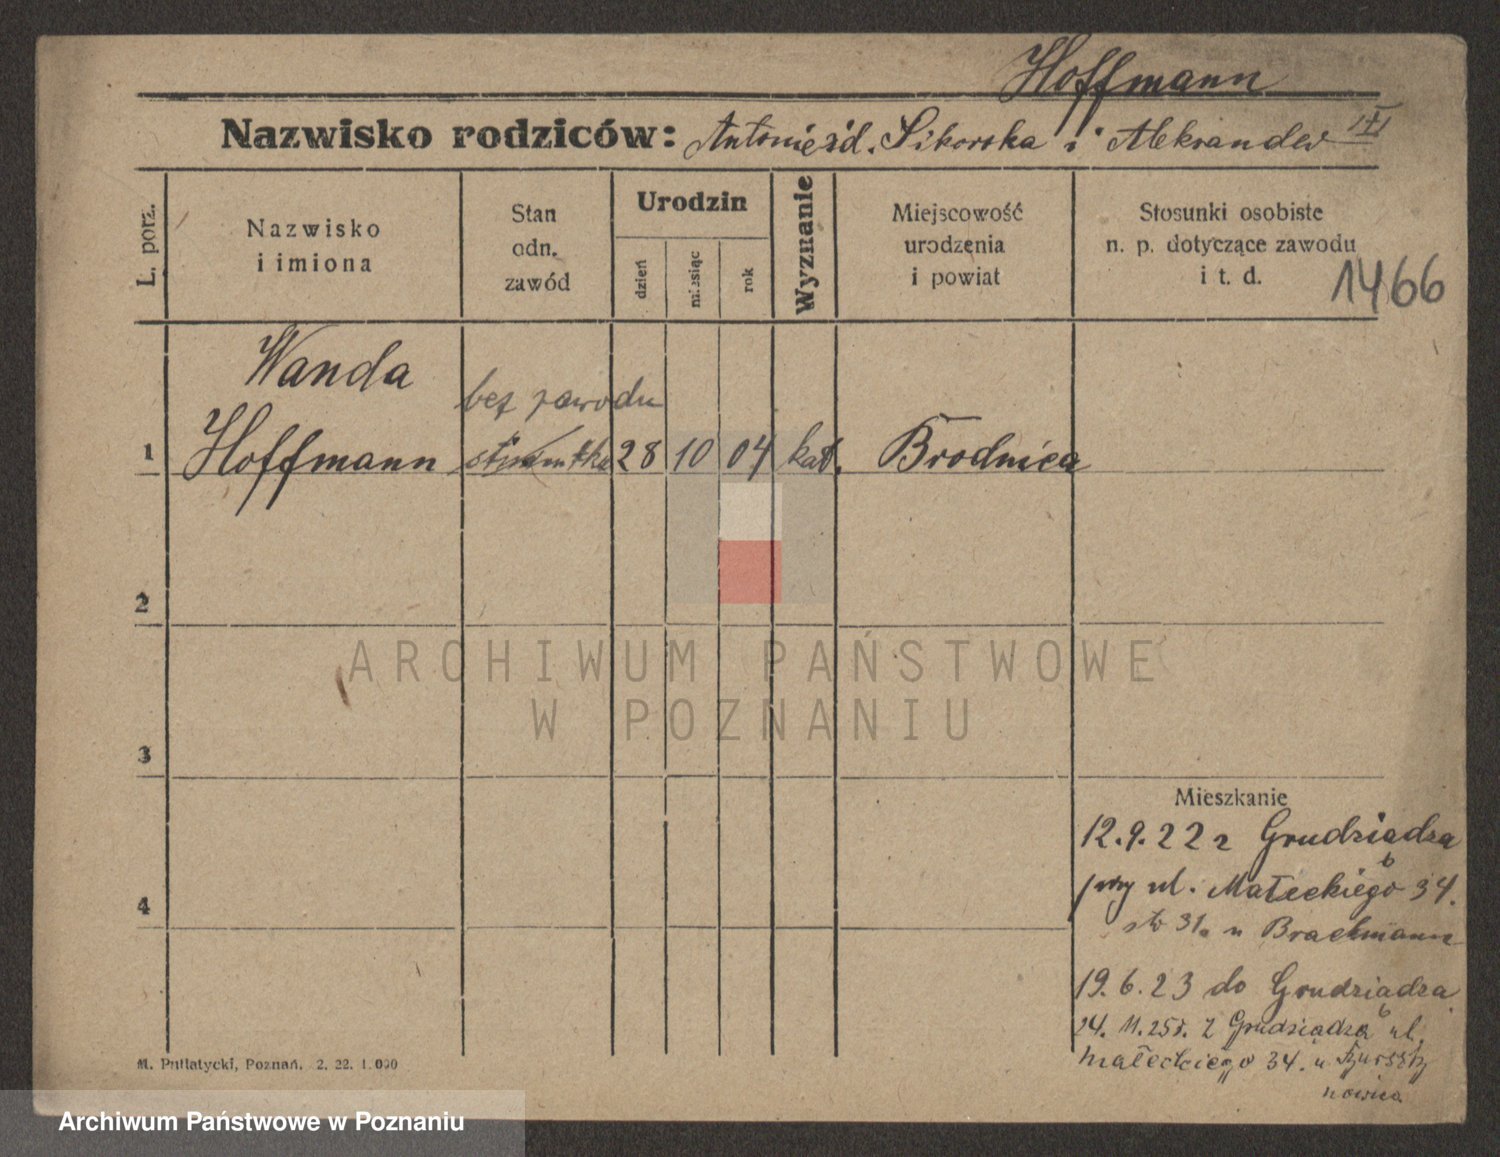 Hoffmann
Nazwisko rodziców: Antonie źd. Sikorska i Aleksander
L. porz.
Nazwisko
i imiona
Stan
odn.
zawód
Urodzin
dzień
miesiąc
rok
Wyznanie
Miejscowość
urodzenia
i powiat
Stosunki osobiste
n. p. dotyczące zawodu
i t. d.
1466
Wanda
bez zawodu
1 Hoffmann 28 10 04 kat. Brodnica
2
3
4
Mieszkanie
12.9.22 z Grudziądza
przy ul. Małeckiego 34.
31. u Brachmann
19.6.23 do Grudziądza
24. 11. 25r. z Grudziądza ul.
Małeckiego 34. u
M. Putiatycki, Poznań. 2. 22. 1.000
ARCHIWUM PAŃSTWOWE
W POZNANIU
Archiwum Państwowe w Poznaniu